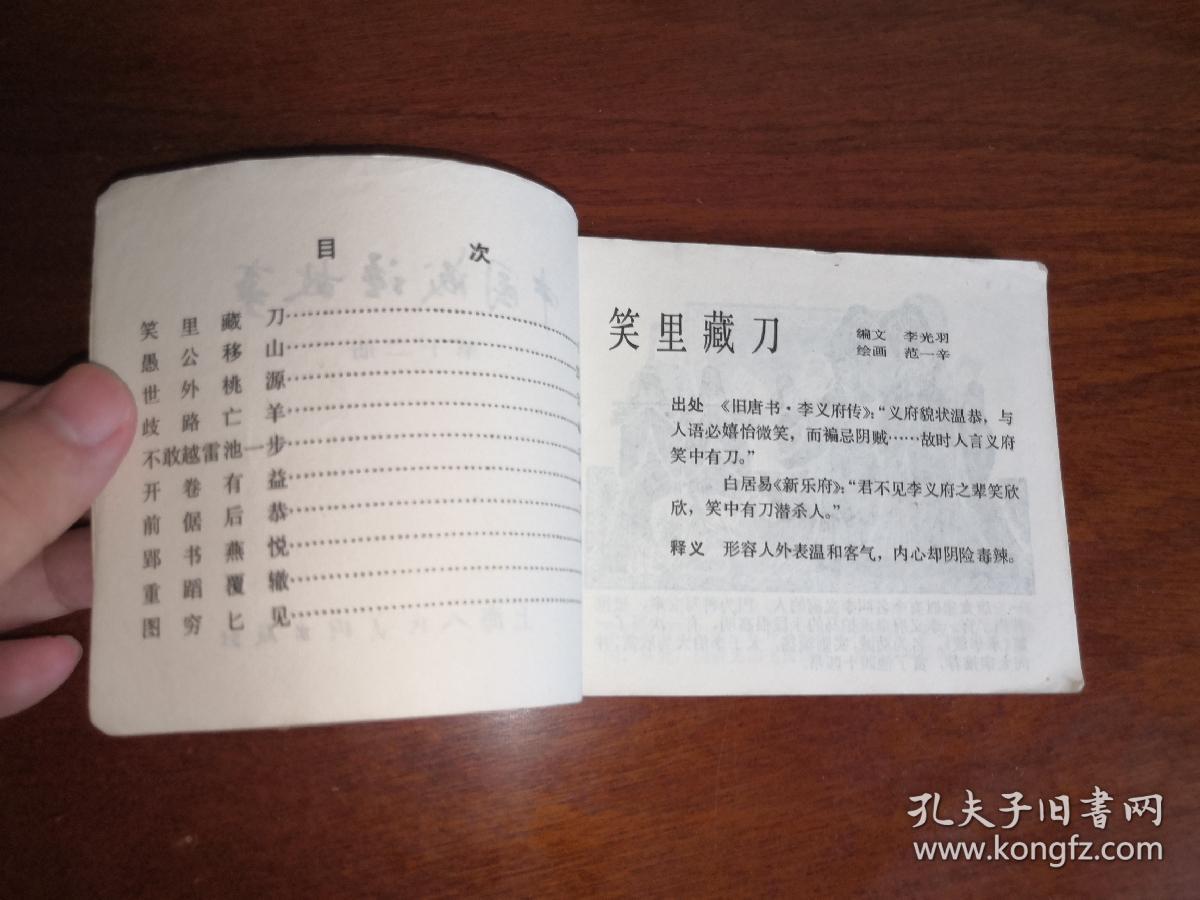 目 次
笑里藏刀
愚公移山
世外桃源
歧路亡羊
不敢越雷池一步
开卷有益
前倨后恭
郢书燕悦
重蹈覆辙
图穷匕见
笑里藏刀
编文 李光羽
绘画 范一辛
出处 《旧唐书·李义府传》：“义府貌状温恭，与
人语必嬉怡微笑，而褊忌阴贼……故时人言义府
笑中有刀。”
白居易《新乐府》：“君不见李义府之辈笑欣
欣，笑中有刀潜杀人。”
释义 形容人外表温和客气，内心却阴险毒辣。
孔夫子旧书网
www.kongfz.com